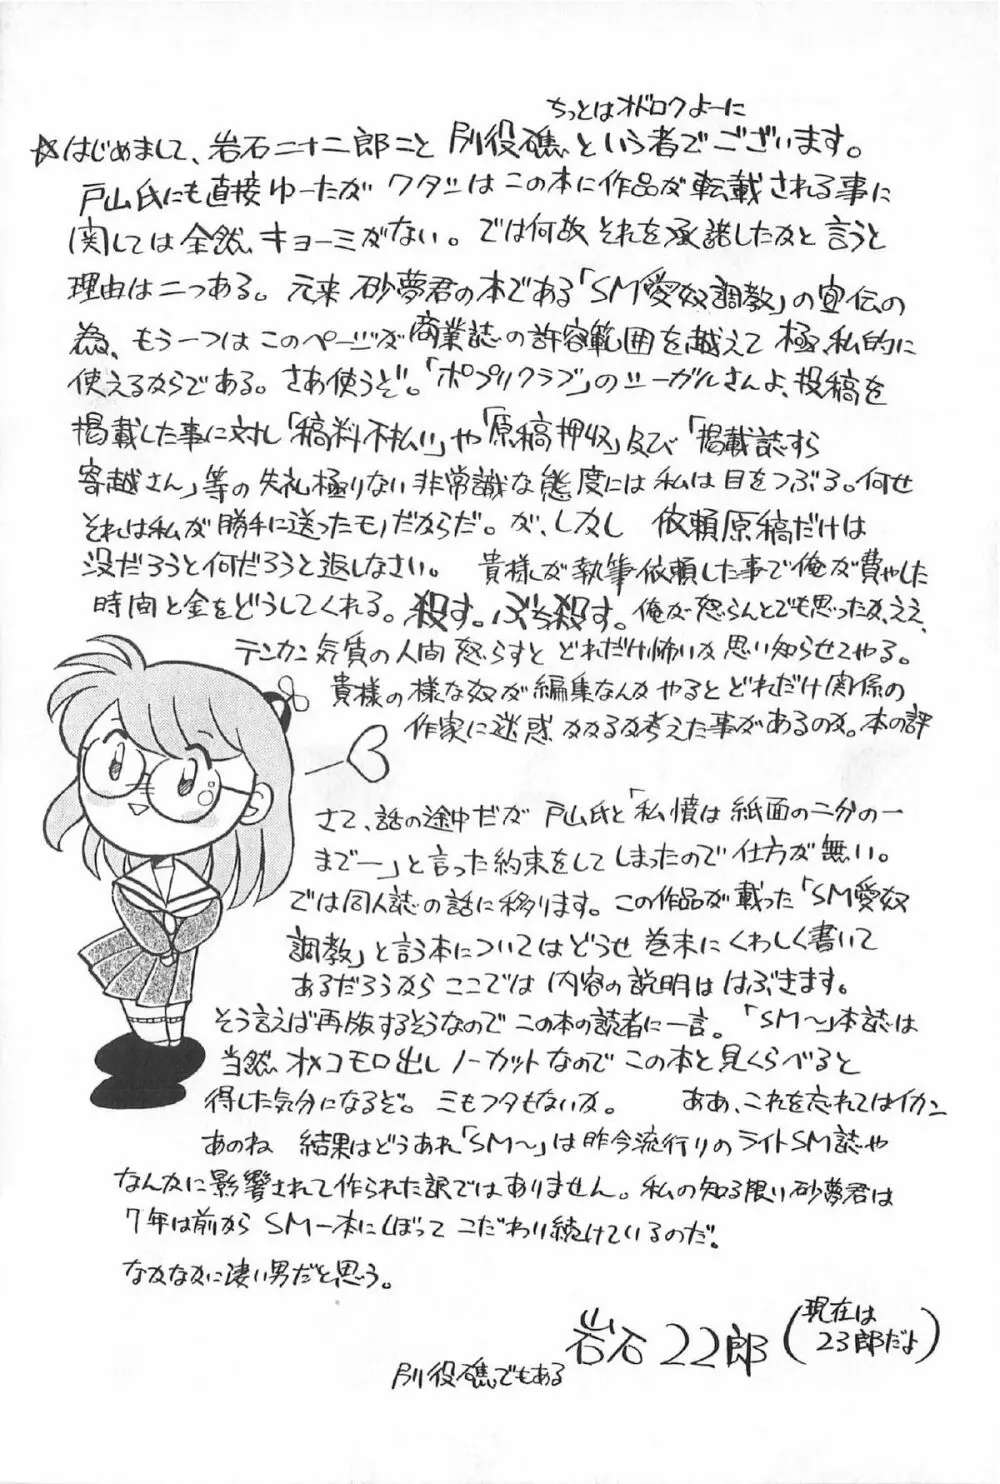 ちっとはオドロクよーに
☆はじめまして、岩石二十二郎こと 別役礁という者でございます。
戸山氏にも直接ゆーたが ワタシはこの本に作品が転載される事に
関しては全然キョーミがない。では何故それを承諾したかと言うと
理由は二つある。元来砂夢君の本である「SM愛奴調教」の宣伝の
為、もう一つはこのページが商業誌の許容範囲を越えて極私的に
使えるからである。さあ使うぞ。「ポプリクラブ」のシーガルさんよ、投稿を
掲載した事に対し「稿料不払い」や「原稿押収」及び「掲載誌すら
寄越さん」等の失礼極りない非常識な態度には私は目をつぶる。何せ
それは私が勝手に送ったモノだからだ。が、しかし 依頼原稿だけは
没だろうと何だろうと返しなさい。 貴様が執筆依頼した事で俺が費やした
時間と金をどうしてくれる。殺す。ぶち殺す。俺が怒らんとでも思ったか、ええ、
テンカン気質の人間怒らすと どれだけ怖いか思い知らせてやる。
貴様の様な奴が編集なんかやるとどれだけ関係の
作家に迷惑かかるか考えた事があるのか。本の評
さて、話の途中だが 戸山氏と「私憤は紙面の二分の一
まで―」と言った約束をしてしまったので仕方が無い。
では同人誌の話に移ります。この作品が載った「SM愛奴
調教」と言う本についてはどうせ巻末にくわしく書いて
あるだろうから ここでは内容の説明は はぶきます。
そう言えば再版するそうなので この本の読者に一言。「SM〜」本誌は
当然 オメコモロ出し ノーカットなので この本と見くらべると
得した気分になるぞ。ミもフタもないか。 ああ、これを忘れてはイカン
あのね 結果はどうあれ「SM〜」は昨今流行りのライトSM誌や
なんかに影響されて作られた訳ではありません。私の知る限り砂夢君は
7年は前から SM一本にしぼって こだわり続けているのだ。
なかなかに凄い男だと思う。
岩石22郎(現在は
23郎だよ)
別役礁でもある